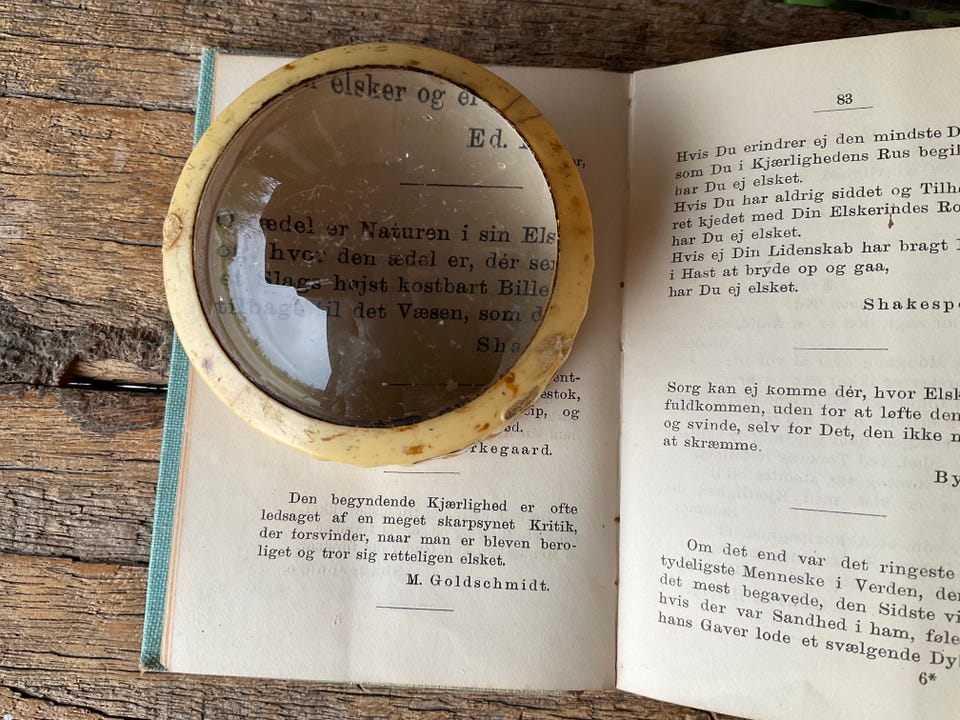 elsker og
Ed.
ædel er Naturen i sin Els
hvor den ædel er, dér se
Slags højst kostbart Bille
tilbage til det Væsen, som d
Sha
og
rkegaard.
Den begyndende Kjærlighed er ofte
ledsaget af en meget skarpsynet Kritik,
der forsvinder, naar man er bleven bero-
liget og tror sig retteligen elsket.
M. Goldschmidt.
83
Hvis Du erindrer ej den mindste D
som Du i Kjærlighedens Rus begi
har Du ej elsket.
Hvis Du har aldrig siddet og Tilh
ret kjedet med Din Elskerindes Ro
har Du ej elsket.
Hvis ej Din Lidenskab har bragt
i Hast at bryde op og gaa,
har Du ej elsket.
Shakesp
Sorg kan ej komme dér, hvor Elsk
fuldkommen, uden for at løfte den
og svinde, selv for Det, den ikke
at skræmme.
By
Om det end var det ringeste
tydeligste Menneske i Verden, de
det mest begavede, den Sidste vi
hvis der var Sandhed i ham, føle
hans Gaver lode et svælgende Dy
6*